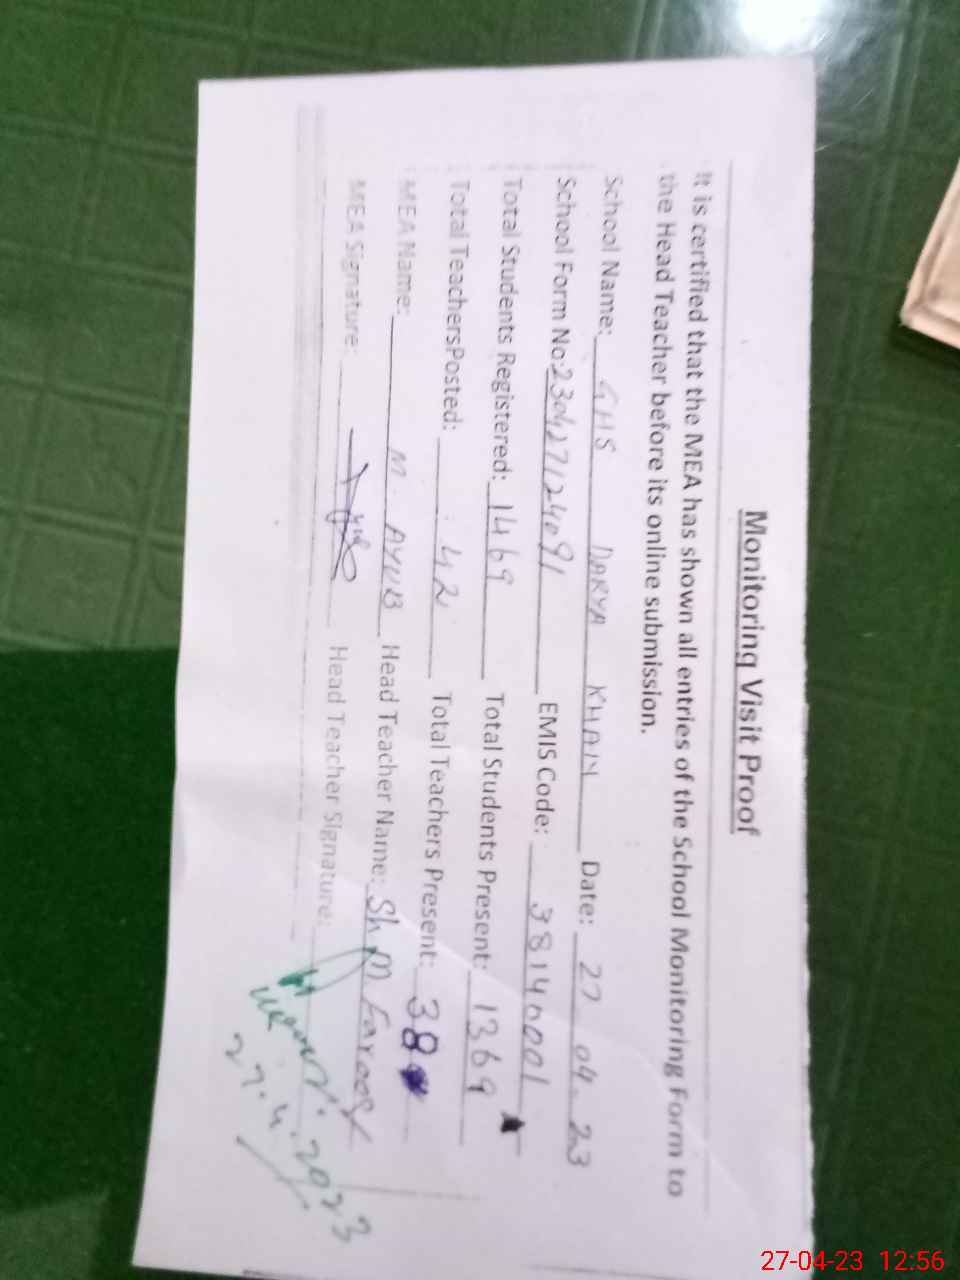 Monitoring Visit Proof
It is certified that the MEA has shown all entries of the School Monitoring Form to
the Head Teacher before its online submission.
School Name: GHS DARYA KHAN Date: 27 04 23
School Form No: 23042712409 1 EMIS Code: 38140001
Total Students Registered: 1469 Total Students Present: 1369
Total TeachersPosted: 42 Total Teachers Present: 38
MEA Name: M. AYUB Head Teacher Name: Sh M Farooq
MEA Signature: Head Teacher Signature:
27.4.2023
27-04-23 12:56